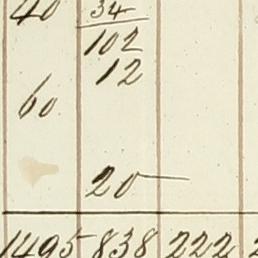 40 34
102
12
60
20
1495 838 222